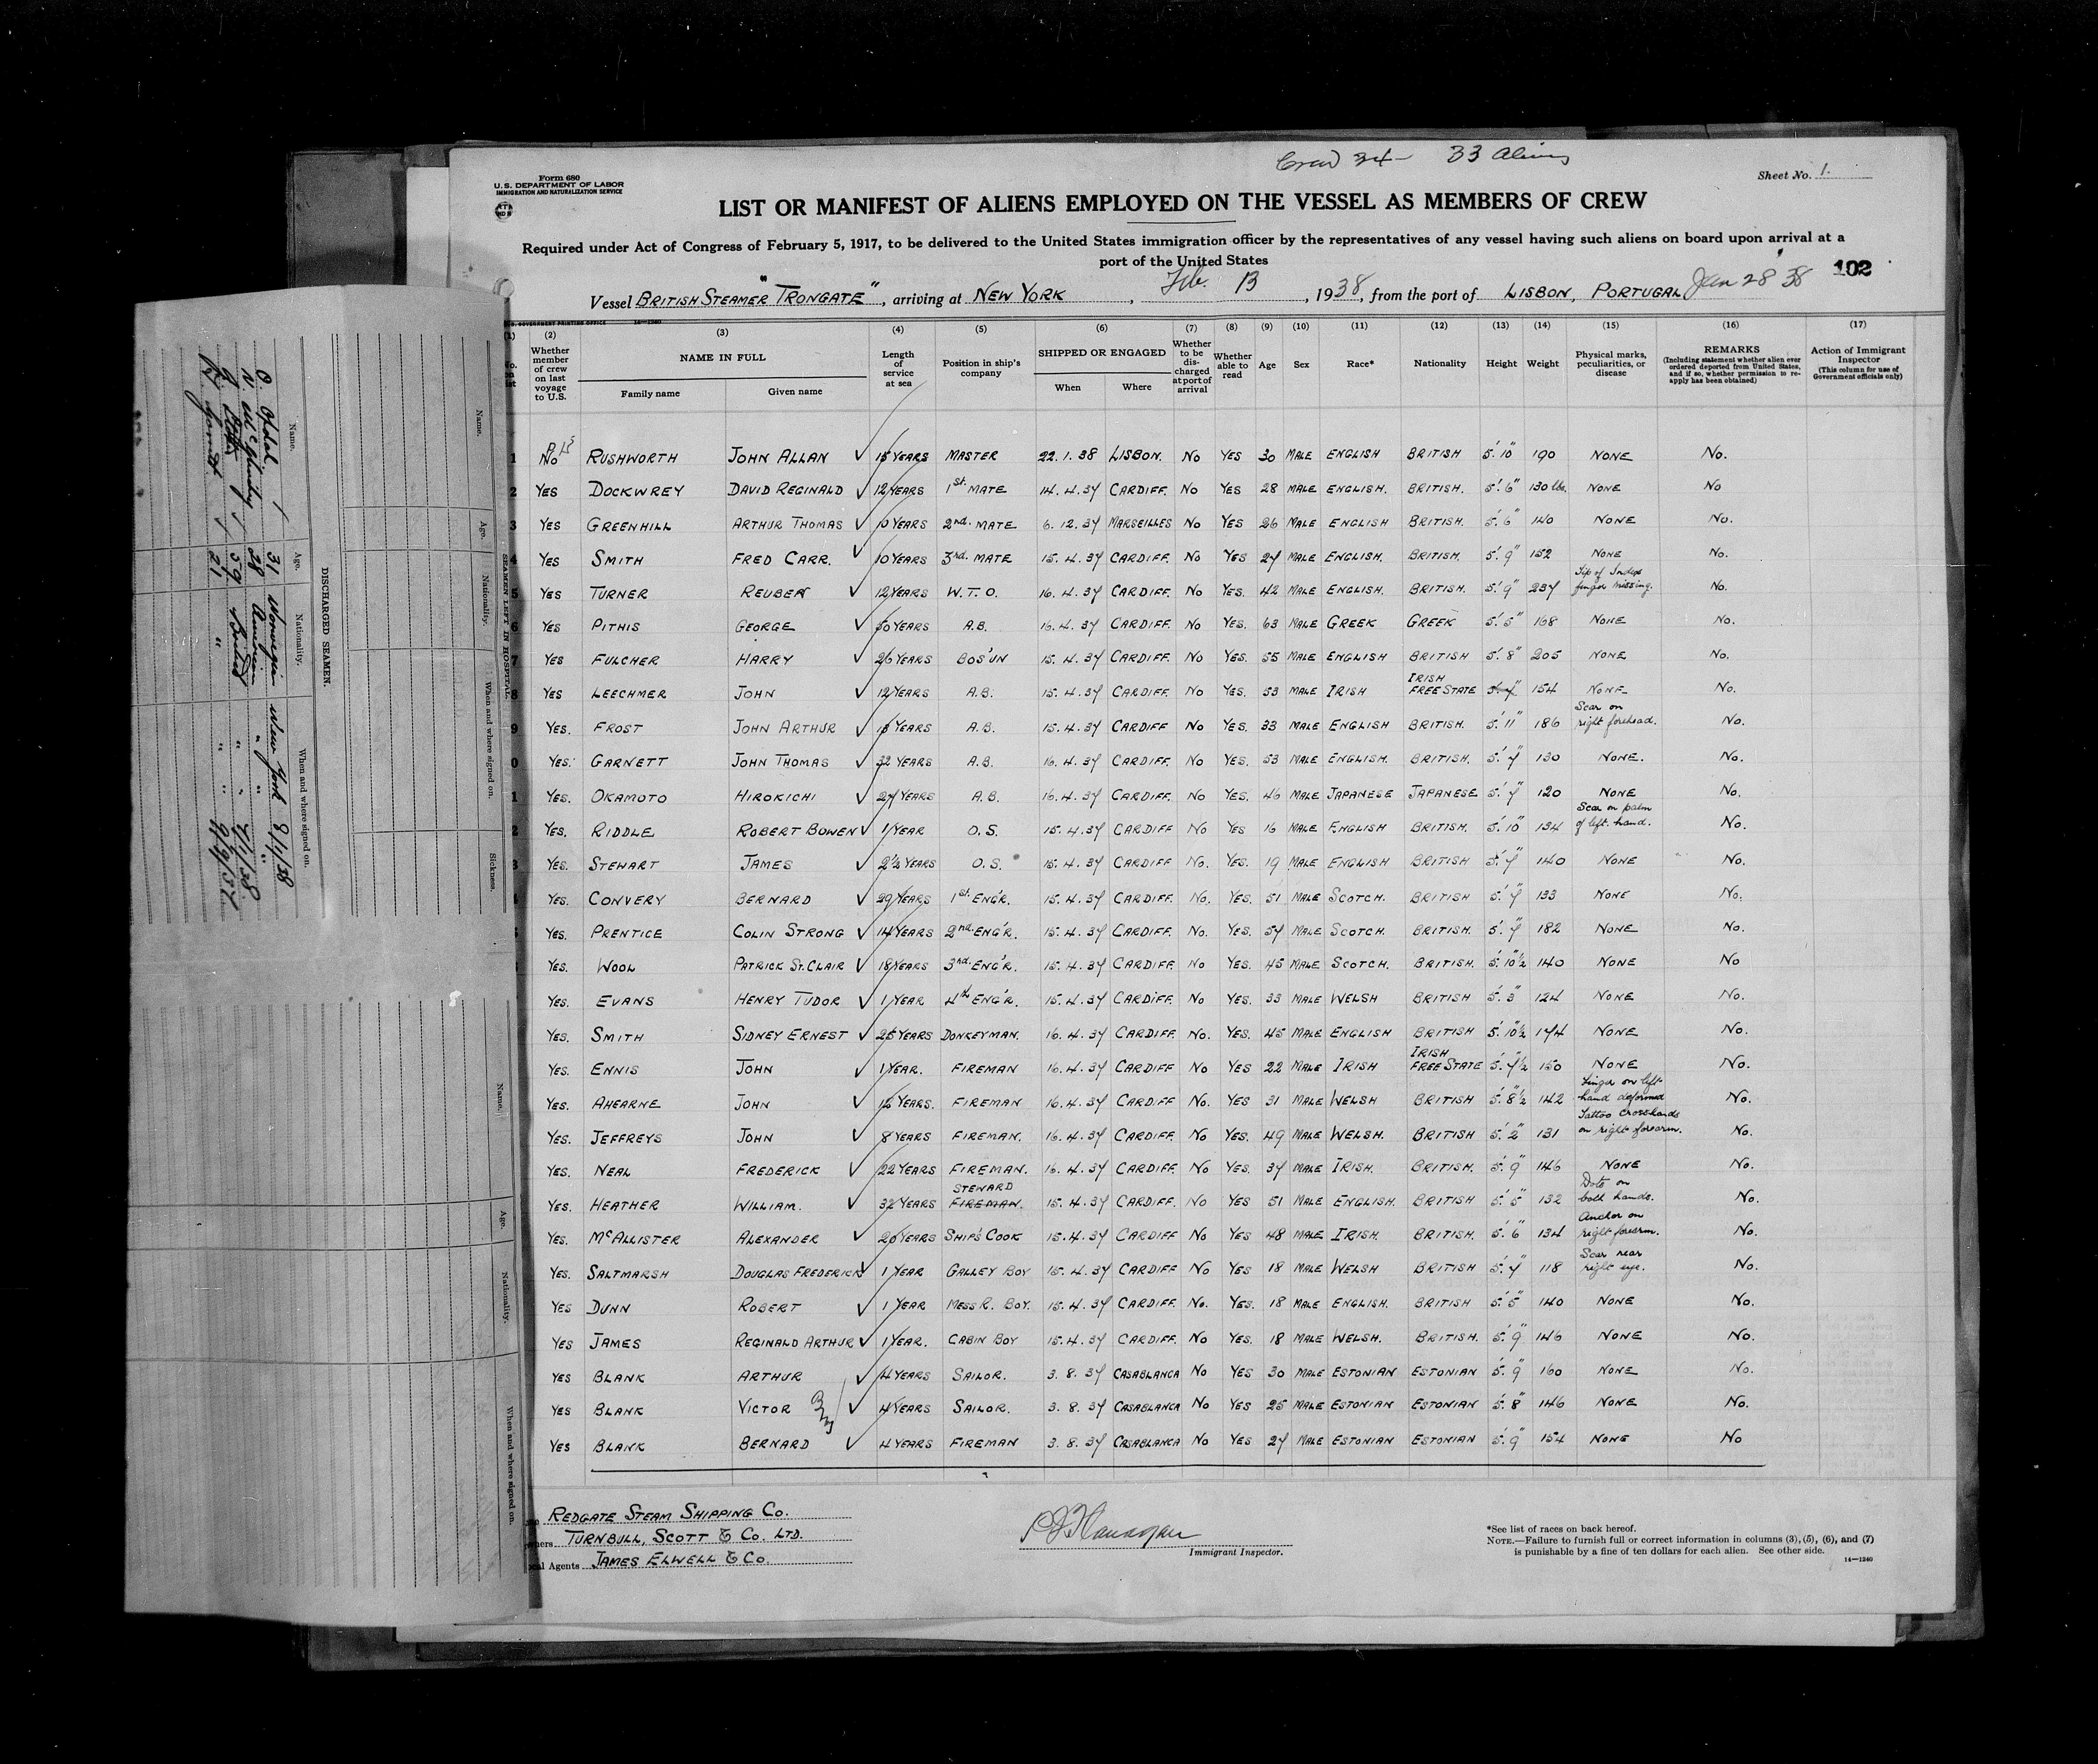 Crew 34 — 33 Aliens
Form 680
U.S. DEPARTMENT OF LABOR
IMMIGRATION AND NATURALIZATION SERVICE
Sheet No. 1.
LIST OR MANIFEST OF ALIENS EMPLOYED ON THE VESSEL AS MEMBERS OF CREW
Required under Act of Congress of February 5, 1917, to be delivered to the United States immigration officer by the representatives of any vessel having such aliens on board upon arrival at a
port of the United States
102
Vessel BRITISH STEAMER "TRONGATE", arriving at NEW YORK, Feb. 13, 1938, from the port of LISBON, PORTUGAL Jan 28 38
(2) (3) (4) (5) (6) (7) (8) (9) (10) (11) (12) (13) (14) (15) (16) (17)
Whether member of crew on last voyage to U.S. NAME IN FULL Family name Given name Length of service at sea Position in ship's company SHIPPED OR ENGAGED When Where Whether to be discharged at port of arrival Whether able to read Age Sex Race* Nationality Height Weight Physical marks, peculiarities, or disease REMARKS (Including statement whether alien ever ordered deported from United States, and if so, whether permission to reapply has been obtained) Action of Immigrant Inspector (This column for use of Government officials only)
1 No RUSHWORTH JOHN ALLAN 15 YEARS MASTER 22.1.38 LISBON. No YES 30 MALE ENGLISH BRITISH 5'.10" 190 NONE No.
2 YES DOCKWREY DAVID REGINALD 12 YEARS 1st. MATE 14.4.37 CARDIFF. No YES 28 MALE ENGLISH. BRITISH. 5'.6" 130 lbs. NONE No
3 YES GREENHILL ARTHUR THOMAS 10 YEARS 2nd. MATE 6.12.37 MARSEILLES No YES 26 MALE ENGLISH BRITISH. 5'.6" 140 NONE No.
4 YES SMITH FRED CARR. 10 YEARS 3rd. MATE 15.4.37 CARDIFF. No YES 27 MALE ENGLISH. BRITISH. 5'.9" 152 NONE No.
5 YES TURNER REUBEN 12 YEARS W.T.O. 16.4.37 CARDIFF. No YES. 42 MALE ENGLISH. BRITISH. 5'.9" 237 Tip of Index finger missing. No.
6 YES PITHIS GEORGE 50 YEARS A.B. 16.4.37 CARDIFF. No YES. 63 MALE GREEK GREEK 5'.5" 168 NONE No.
7 YES FULCHER HARRY 26 YEARS BOS'UN 15.4.37 CARDIFF. No YES. 55 MALE ENGLISH BRITISH 5'.8" 205 NONE No.
8 YES LEECHMER JOHN 12 YEARS A.B. 15.4.37 CARDIFF. No YES. 53 MALE IRISH IRISH FREE STATE 5'.7" 154 NONE No.
9 YES. FROST JOHN ARTHUR 15 YEARS A.B. 15.4.37 CARDIFF No YES. 33 MALE ENGLISH BRITISH. 5'.11" 186 Scar on right forehead. No.
0 YES. GARNETT JOHN THOMAS 32 YEARS A.B. 16.4.37 CARDIFF. No YES. 53 MALE ENGLISH. BRITISH. 5'.7" 130 NONE. No.
1 YES. OKAMOTO HIROKICHI 27 YEARS A.B. 16.4.37 CARDIFF. No YES. 46 MALE JAPANESE JAPANESE 5'.7" 120 NONE No.
2 YES. RIDDLE ROBERT BOWEN 1 YEAR O.S. 15.4.37 CARDIFF No YES 16 MALE ENGLISH BRITISH. 5'.10" 134 Scar on palm of left hand. No.
3 YES. STEWART JAMES 2½ YEARS O.S. 15.4.37 CARDIFF No. YES. 19 MALE ENGLISH BRITISH 5'.7" 140 NONE No.
YES. CONVERY BERNARD 29 YEARS 1st. ENG'R. 15.4.37 CARDIFF. No. YES. 51 MALE SCOTCH. BRITISH 5'.7" 133 NONE No.
YES. PRENTICE COLIN STRONG 14 YEARS 2nd. ENG'R. 15.4.37 CARDIFF. No. YES. 57 MALE SCOTCH. BRITISH. 5'.7" 182 NONE No.
YES. WOOL PATRICK ST. CLAIR 18 YEARS 3rd. ENG'R. 15.4.37 CARDIFF. No YES. 45 MALE SCOTCH. BRITISH. 5'.10½" 140 NONE No
YES. EVANS HENRY TUDOR 1 YEAR 4th ENG'R. 15.4.37 CARDIFF. No YES. 33 MALE WELSH BRITISH 5'.3" 124 NONE No.
YES. SMITH SIDNEY ERNEST 25 YEARS DONKEYMAN. 16.4.37 CARDIFF. No. YES. 45 MALE ENGLISH BRITISH 5'.10½" 174 NONE No.
YES. ENNIS JOHN 1 YEAR. FIREMAN 16.4.37 CARDIFF No YES 22 MALE IRISH IRISH FREE STATE 5'.7½" 150 NONE No.
YES. AHEARNE JOHN 15 YEARS. FIREMAN 16.4.37 CARDIFF No. YES 31 MALE WELSH BRITISH 5'.8½" 142 Finger on left hand deformed No.
YES. JEFFREYS JOHN 8 YEARS FIREMAN. 16.4.37 CARDIFF. No YES. 49 MALE WELSH. BRITISH 5'.2" 131 Tattoo crosshands on right forearm. No.
YES. NEAL FREDERICK 22 YEARS FIREMAN. 16.4.37 CARDIFF. No YES. 37 MALE IRISH. BRITISH. 5'.9" 146 NONE No.
YES. HEATHER WILLIAM. 32 YEARS STEWARD FIREMAN. 15.4.37 CARDIFF. No YES 51 MALE ENGLISH. BRITISH 5'.5" 132 Dots on both hands. No.
YES. McALLISTER ALEXANDER 20 YEARS SHIP'S COOK 15.4.37 CARDIFF No YES 48 MALE IRISH. BRITISH. 5'.6" 134 Anchor on right forearm. No.
YES. SALTMARSH DOUGLAS FREDERICK 1 YEAR GALLEY BOY 15.4.37 CARDIFF No YES 18 MALE WELSH BRITISH 5'.7" 118 Scar near right eye. No.
YES DUNN ROBERT 1 YEAR MESS R. BOY. 15.4.37 CARDIFF. No. YES. 18 MALE ENGLISH. BRITISH 5'.5" 140 NONE No.
YES JAMES REGINALD ARTHUR 1 YEAR. CABIN BOY 15.4.37 CARDIFF. No YES. 18 MALE WELSH. BRITISH. 5'.9" 146 NONE No.
YES BLANK ARTHUR 4 YEARS SAILOR. 3.8.37 CASABLANCA No YES 30 MALE ESTONIAN ESTONIAN 5'.9" 160 NONE No.
YES BLANK VICTOR 4 YEARS SAILOR. 3.8.37 CASABLANCA No YES 25 MALE ESTONIAN ESTONIAN 5'.8" 146 NONE No.
YES BLANK BERNARD 4 YEARS FIREMAN 3.8.37 CASABLANCA No YES 27 MALE ESTONIAN ESTONIAN 5'.9" 154 NONE No
REDGATE STEAM SHIPPING CO.
TURNBULL, SCOTT & CO. LTD.
Agents JAMES ELWELL & CO.
Immigrant Inspector.
*See list of races on back hereof.
NOTE.—Failure to furnish full or correct information in columns (3), (5), (6), and (7)
is punishable by a fine of ten dollars for each alien. See other side.
14—1240
SEAMEN LEFT IN HOSPITAL
Name. Age. Nationality. When and where signed on. Sickness.
DISCHARGED SEAMEN.
Name. Age. Nationality. When and where signed on.
31 Norwegian New York 8/1/38
38 American " "
39 British " " 7/1/38
21 " " "
Name. Age. Nationality. When and where signed on.